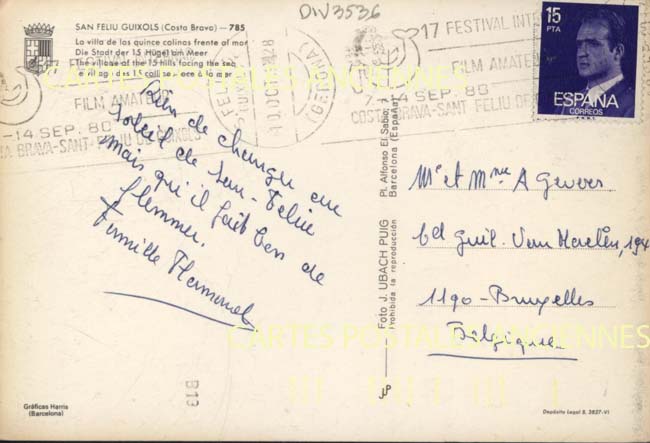 DIV3536
SAN FELIU GUIXOLS (Costa Brava) — 785
La villa de las quince colinas frente al mar
Die Stadt der 15 Hügel am Meer
The village of the 15 hills facing the sea
Le village des 15 collines face à la mer
CARTES POSTALES ANCIENNES
FILM AMATEUR
-14 SEP. 80
BRAVA-SANT FELIU DE GUIXOLS
10 OCT
(GERONA)
17 FESTIVAL INT
FILM AMATE
7-14 SEP. 80
COSTA BRAVA-SANT FELIU DE
15
PTA
ESPAÑA
CORREOS
Rien de changer au
soleil de San-Feliu
mais qu'il fait bon de
flemmer.
Famille
Pl. Alfonso El Sabio,
Barcelona (España)
Foto J. UBACH PUIG
Prohibida la reproducción
JUP
Mr et Mme A Gevers
bd Guil. Van Haelen, 194
1190-Bruxelles
Belgique
CARTES POSTALES ANCIENNES
B13
Gráficas Harris
(Barcelona)
Depósito Legal B. 3827-VI